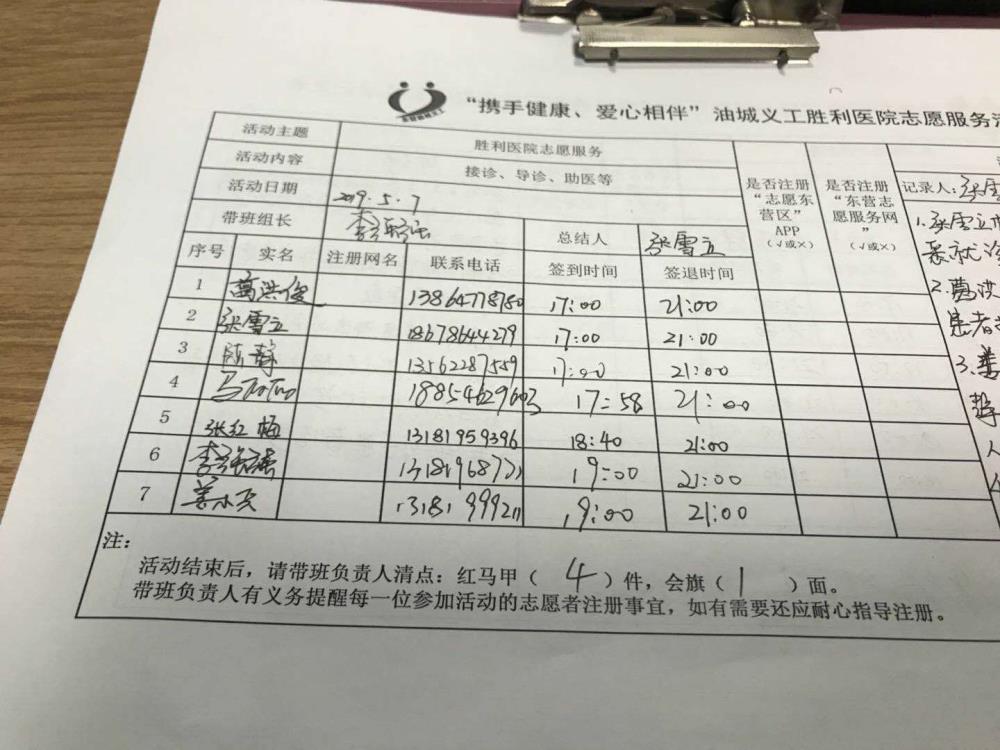 “携手健康、爱心相伴”油城义工胜利医院志愿服务活
活动主题 胜利医院志愿服务
活动内容 接诊、导诊、助医等
活动日期 2019.5.7
带班组长 总结人 张雪立
是否注册“志愿东营区”APP（√或×）
是否注册“东营志愿服务网”（√或×）
记录人：张雪
序号 实名 注册网名 联系电话 签到时间 签退时间
1 葛洪俊 13864778780 17:00 21:00
2 张雪立 18678644279 17:00 21:00
3 陈静 13562287559 17:00 21:00
4 马 18854629603 17:58 21:00
5 张红梅 13181959396 18:40 21:00
6 李 13181968721 19:00 21:00
7 姜 13181999211 19:00 21:00
1.张雪立
2.葛洪
患者
3.姜
注：
活动结束后，请带班负责人清点：红马甲（ 4 ）件，会旗（ 1 ）面。
带班负责人有义务提醒每一位参加活动的志愿者注册事宜，如有需要还应耐心指导注册。